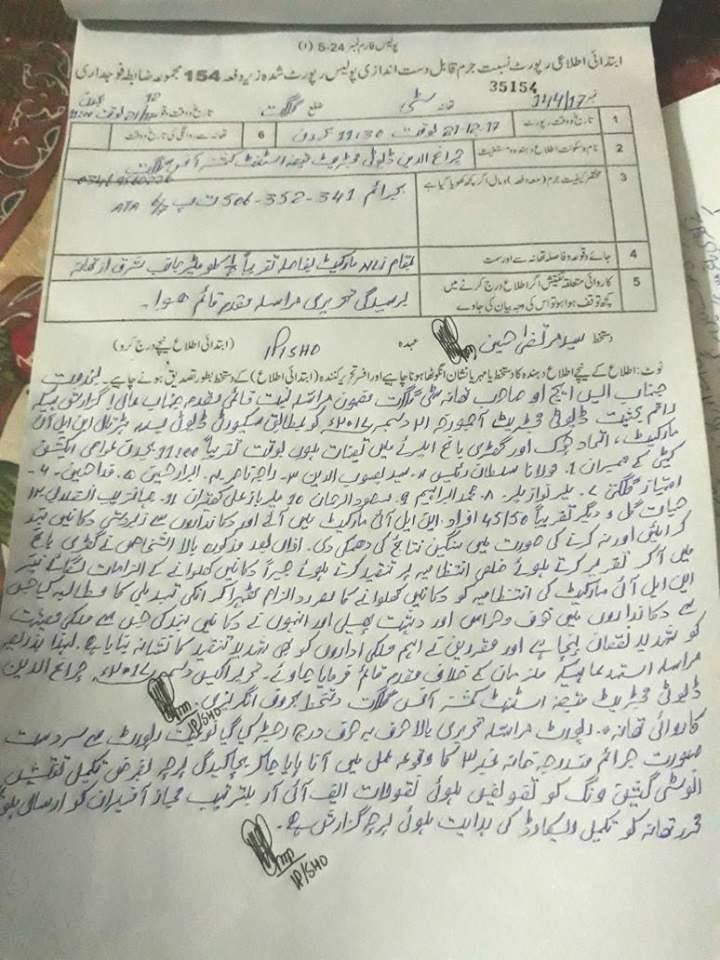 پولیس فارم نمبر 24-5 (۱)
ابتدائی اطلاعی رپورٹ نسبت جرم قابل دست اندازی پولیس رپورٹ شدہ زیر دفعہ 154 مجموعہ ضابطہ فوجداری
35154
نمبر 114/17 تھانہ سٹی ضلع گلگت تاریخ و وقت
1 تاریخ و وقت رپورٹ 21-12-17 بوقت 11:30 بجے دن 6 تھانہ سے روانگی کی تاریخ و وقت
2 نام و سکونت اطلاع دہندہ و مستغیث چراغ الدین ڈیوٹی مجسٹریٹ متعینہ اسسٹنٹ کمشنر آفس گلگت
3 مختصر کیفیت جرم (معہ دفعہ) و مال اگر کچھ کھویا گیا ہے بجرائم 341-352-506 ت پ 6/7 ATA
4 جائے وقوعہ و فاصلہ تھانہ سے اور سمت بمقام NLI مارکیٹ بفاصلہ تقریباً کلومیٹر جانب مشرق از تھانہ
5 کاروائی متعلقہ تفتیش اگر اطلاع درج کرنے میں کچھ توقف ہوا ہو تو اس کی وجہ بیان کی جاوے برسیدگی تحریری مراسلہ مقدمہ قائم ہوا۔
دستخط سید مرتضیٰ حسین عہدہ IP/SHO (ابتدائی اطلاع نیچے درج کرو)
نوٹ: اطلاع کے نیچے اطلاع دہندہ کا دستخط یا مہر یا نشان انگوٹھا ہونا چاہیے اور افسر تحریر کنندہ (ابتدائی اطلاع) کے دستخط بطور تصدیق ہونے چاہیے۔ بخدمت
جناب ایس ایچ او صاحب تھانہ سٹی گلگت مضمون مراسلہ نسبت قائمی مقدمہ جناب عالی! گزارش ہیکہ
راقم بحیثیت ڈیوٹی مجسٹریٹ آج مورخہ ۲۱ دسمبر ۲۰۱۷ء کو مطابق سیکیورٹی ڈیوٹی این ایل آئی
مارکیٹ، اتحاد چوک اور گھڑی باغ ایریے میں تعینات ہوں بوقت تقریباً 11:00 بجے دن عوامی ایکشن
کمیٹی کے ممبران 1۔ مولانا سلطان رئیس ۲۔ سید یعصوب الدین ۳۔ راجہ ناصر ۴۔ ابرار حسین ۵۔ فدا حسین۔ ۶۔
امتیاز گلگتی ۷۔ ۸۔ محمد ابراہیم 9۔ مسعود الرحمان 10 11۔ ۱۲
حیات گل و دیگر تقریباً 45/50 افراد این ایل آئی مارکیٹ میں آئے اور دکانداروں سے زبردستی دکانیں بند
کرائیں اور نہ کرنے کی صورت میں سنگین نتائج کی دھمکی دی۔ ازاں بعد مذکورہ بالا اشخاص نے گھڑی باغ
میں آ کر تقریر کرتے ہوئے ضلعی انتظامیہ پر تنقید کرتے ہوئے جبراً دکانیں کھلوانے کے الزامات لگائے نیز
این ایل آئی مارکیٹ کی انتظامیہ کو دکانیں کھلوانے کا مورد الزام ٹھہرا کر انکی تبدیلی کا مطالبہ کیا جس
سے دکانداروں میں خوف و ہراس اور دہشت پھیلی اور انہوں نے دکانیں بند کی جس سے ملکی معیشت
کو شدید نقصان پہنچا ہے اور مقررین نے اہم ملکی اداروں کو بھی شدید تنقید کا نشانہ بنایا ہے۔ لہٰذا بذریعہ
مراسلہ استدعا ہیکہ ملزمان کے خلاف مقدمہ قائم فرمایا جاوے۔ تحریر اکیس دسمبر ۲۰۱۷ء چراغ الدین
ڈیوٹی مجسٹریٹ متعینہ اسسٹنٹ کمشنر آفس گلگت دستخط بحروف انگریزی۔
IP/SHO
کاروائی تھانہ۔ رپورٹ مراسلہ تحریری بالا حرف بہ حرف درج رجسٹر کی گئی نوعیت رپورٹ سے سردست
صورت جرائم مندرجہ خانہ نمبر ۳ کا وقوعہ عمل میں آنا پایا جا کر بچاکیدگی پرچہ بغرض تکمیل تفتیش
انوسٹی گیشن ونگ کو تفویض ہوئی نقولات ایف آئی آر بلترتیب مجاز آفیسران کو ارسال ہوں
محرر تھانہ کو تکمیل ریکارڈ کی ہدایت ہوئی پرچہ گزارش ہے۔
IP/SHO